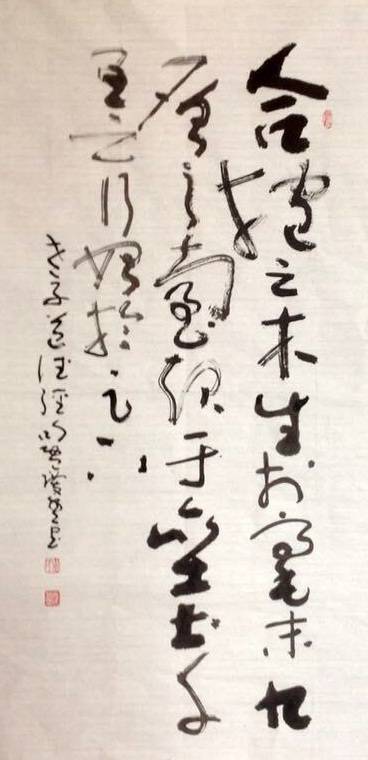 合抱之木生於毫末九
層之臺起于垒土千
里之行始於足下
老子道德經